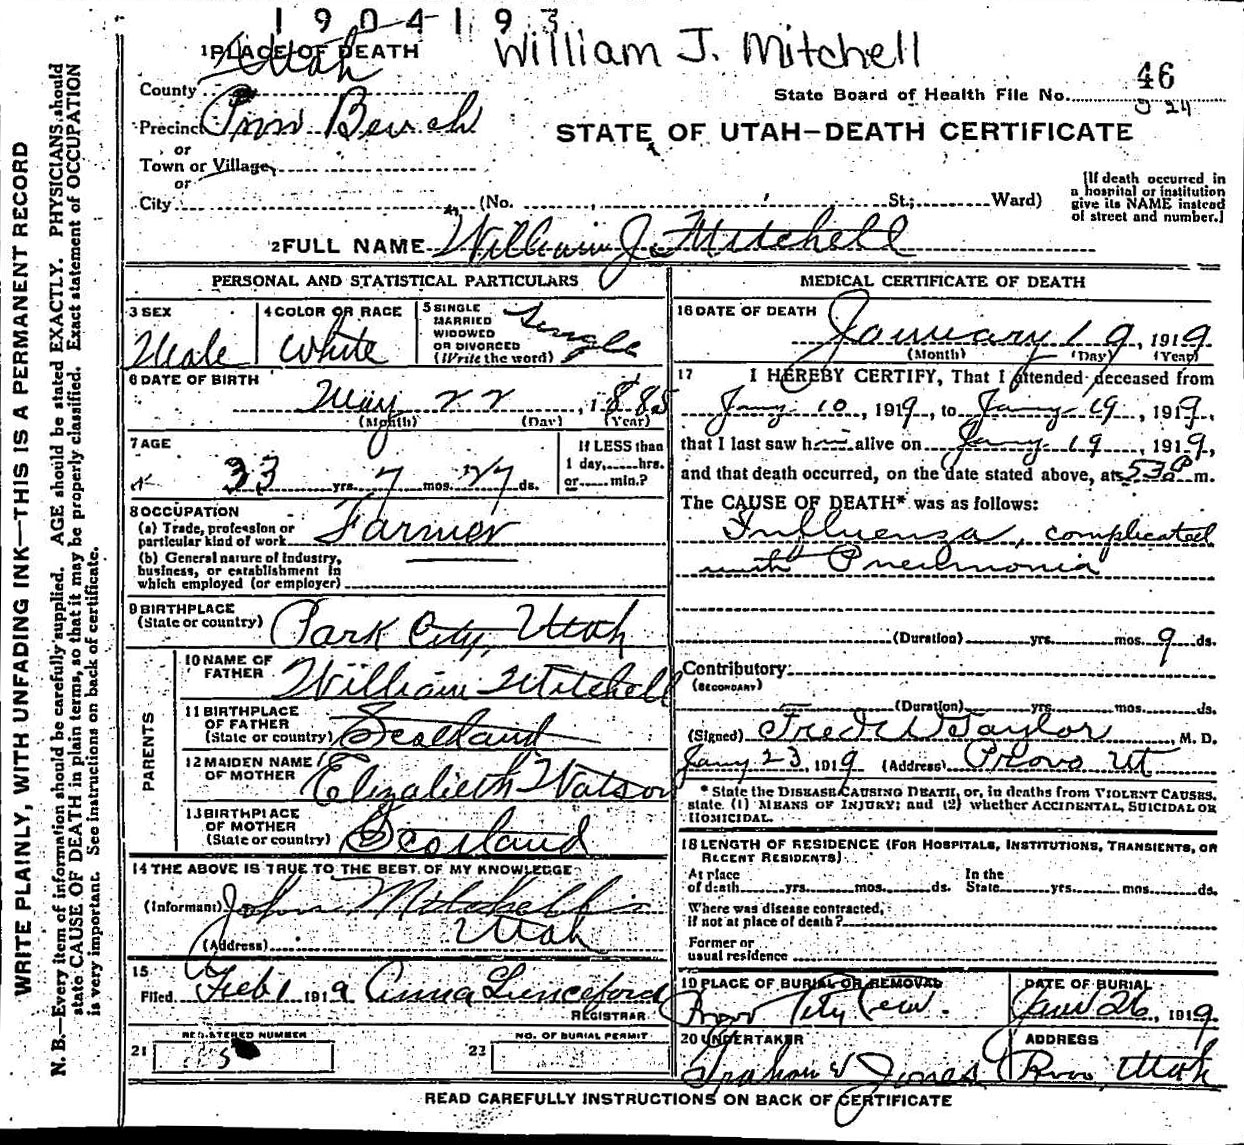 1904193
William J. Mitchell
1 PLACE OF DEATH
County Utah
46
State Board of Health File No.
Precinct Prov. Bench
or
Town or Village
or
City (No. St.; Ward)
STATE OF UTAH—DEATH CERTIFICATE
[If death occurred in
a hospital or institution
give its NAME instead
of street and number.]
2 FULL NAME William J. Mitchell
PERSONAL AND STATISTICAL PARTICULARS
3 SEX
Male
4 COLOR OR RACE
White
5 SINGLE
MARRIED
WIDOWED
OR DIVORCED
(Write the word)
Single
6 DATE OF BIRTH
May 22, 1885
(Month) (Day) (Year)
7 AGE
33 yrs. 7 mos. 27 ds.
If LESS than
1 day, hrs.
or min.?
8 OCCUPATION
(a) Trade, profession or
particular kind of work Farmer
(b) General nature of industry,
business, or establishment in
which employed (or employer)
9 BIRTHPLACE
(State or country) Park City, Utah
PARENTS
10 NAME OF
FATHER William Mitchell
11 BIRTHPLACE
OF FATHER
(State or country) Scotland
12 MAIDEN NAME
OF MOTHER Elizabeth Watson
13 BIRTHPLACE
OF MOTHER
(State or country) Scotland
14 THE ABOVE IS TRUE TO THE BEST OF MY KNOWLEDGE
(Informant) John Mitchell
(Address) Utah
15
Filed Feb 1 1919 Anna Lunceford
REGISTRAR
REGISTERED NUMBER
21 5
NO. OF BURIAL PERMIT
22
MEDICAL CERTIFICATE OF DEATH
16 DATE OF DEATH
January 19, 1919
(Month) (Day) (Year)
17 I HEREBY CERTIFY, That I attended deceased from
Jany 10, 1919, to Jany 19, 1919,
that I last saw him alive on Jany 19, 1919,
and that death occurred, on the date stated above, at 530 P m.
The CAUSE OF DEATH* was as follows:
Influensa, complicated
with Pneumonia
(Duration) yrs. mos. 9 ds.
Contributory:
(SECONDARY)
(Duration) yrs. mos. ds.
(Signed) Fred W Taylor, M. D.
Jany 23, 1919 (Address) Provo Ut
* State the DISEASE CAUSING DEATH, or, in deaths from VIOLENT CAUSES,
state (1) MEANS OF INJURY; and (2) whether ACCIDENTAL, SUICIDAL OR
HOMICIDAL.
18 LENGTH OF RESIDENCE (FOR HOSPITALS, INSTITUTIONS, TRANSIENTS, OR
RECENT RESIDENTS)
At place
of death yrs. mos. ds.
In the
State yrs. mos. ds.
Where was disease contracted,
if not at place of death?
Former or
usual residence
19 PLACE OF BURIAL OR REMOVAL
Provo City Cem.
DATE OF BURIAL
Jan 26, 1919
20 UNDERTAKER
Graham & Jones
ADDRESS
Provo, Utah
READ CAREFULLY INSTRUCTIONS ON BACK OF CERTIFICATE
WRITE PLAINLY, WITH UNFADING INK—THIS IS A PERMANENT RECORD
N. B.—Every item of information should be carefully supplied. AGE should be stated EXACTLY. PHYSICIANS should
state CAUSE OF DEATH in plain terms, so that it may be properly classified. Exact statement of OCCUPATION
is very important. See instructions on back of certificate.